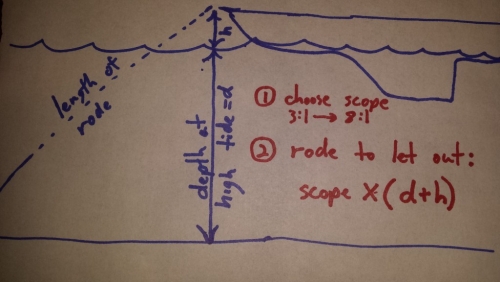 h
length of
rode
depth at
high tide = d
① choose scope
3:1 → 8:1
② rode to let out:
scope X (d+h)